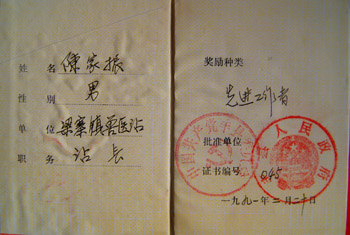 姓 名 陈家振
性 别 男
单 位 梁寨镇兽医站
职 务 站长
奖励种类
先进工作者
批准单位
人民政府
证书编号 045
一九九一年二月二十日